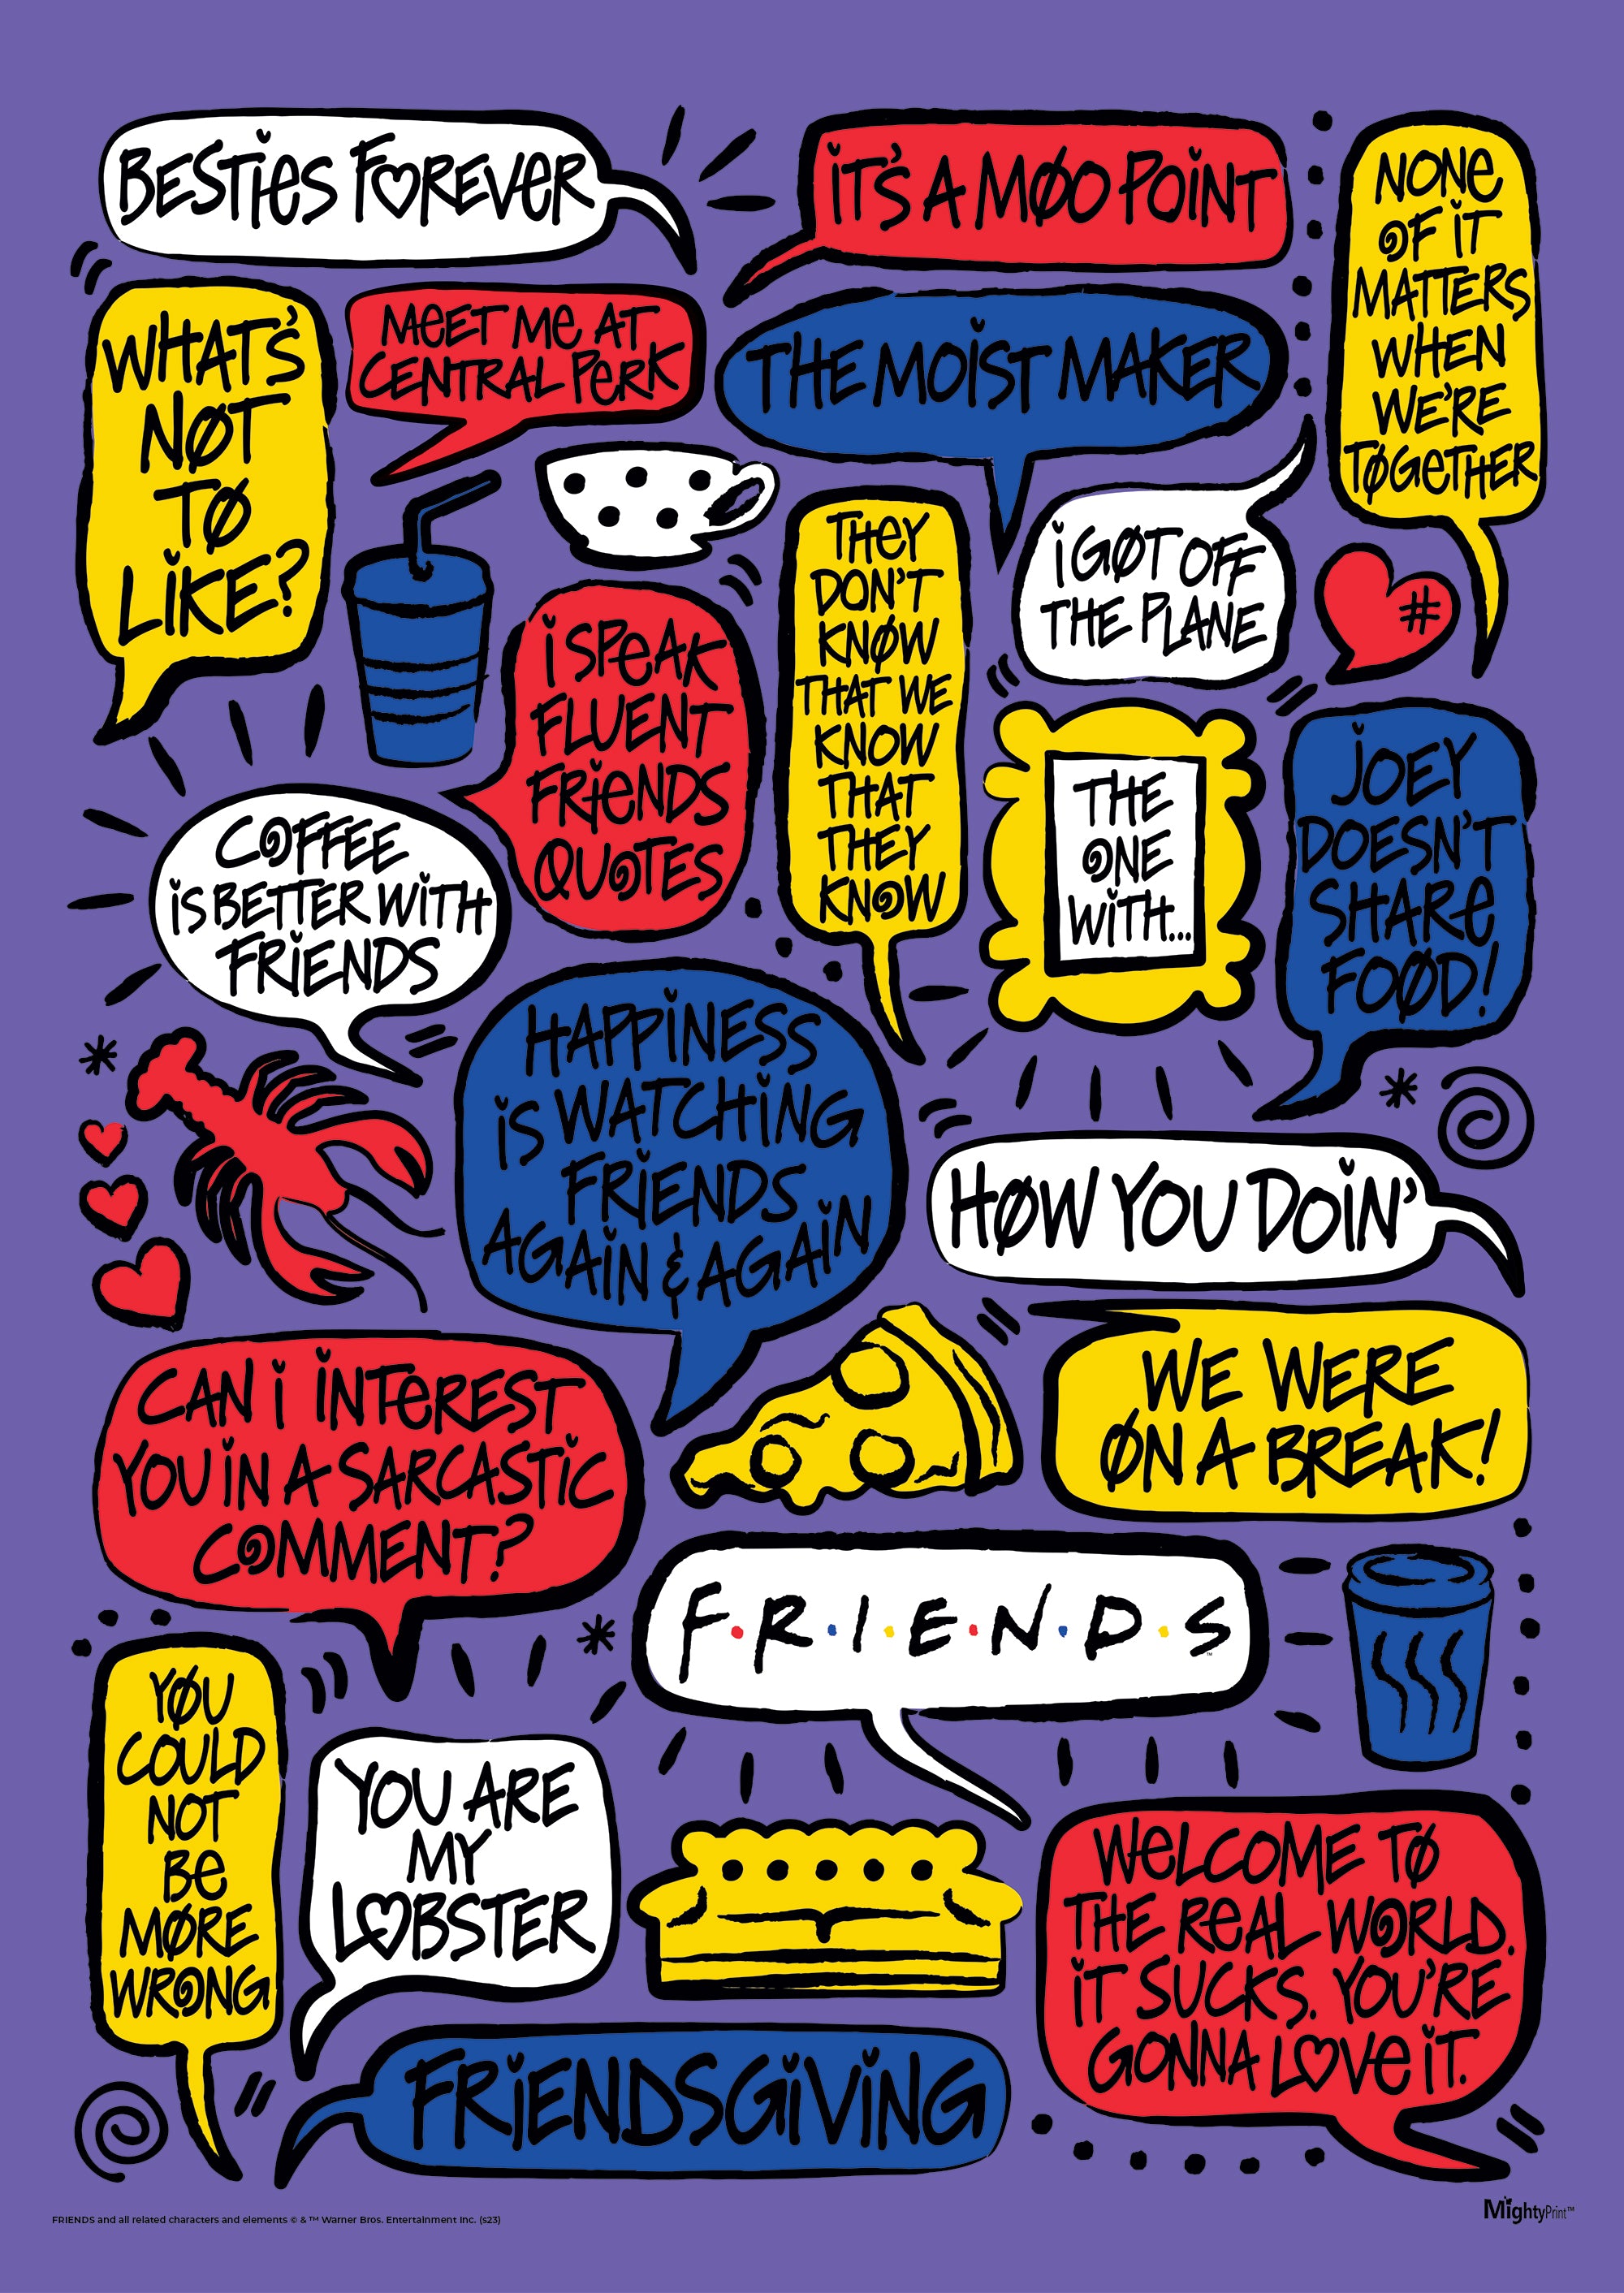 BESTIES FOREVER
IT'S A MOO POINT
NONE
OF IT
MATTERS
WHEN
WE'RE
TOGETHER
WHAT'S
NOT
TO
LIKE?
MEET ME AT
CENTRAL PERK
THE MOIST MAKER
THEY
DON'T
KNOW
THAT WE
KNOW
THAT
THEY
KNOW
I GOT OFF
THE PLANE
#
I SPEAK
FLUENT
FRIENDS
QUOTES
THE
ONE
WITH...
JOEY
DOESN'T
SHARE
FOOD!
COFFEE
IS BETTER WITH
FRIENDS
HAPPINESS
IS WATCHING
FRIENDS
AGAIN & AGAIN
HOW YOU DOIN'
CAN I INTEREST
YOU IN A SARCASTIC
COMMENT?
WE WERE
ON A BREAK!
F·R·I·E·N·D·S™
YOU
COULD
NOT
BE
MORE
WRONG
YOU ARE
MY
LOBSTER
WELCOME TO
THE REAL WORLD.
IT SUCKS. YOU'RE
GONNA LOVE IT.
FRIENDSGIVING
FRIENDS and all related characters and elements © & ™ Warner Bros. Entertainment Inc. (s23)
MightyPrint™